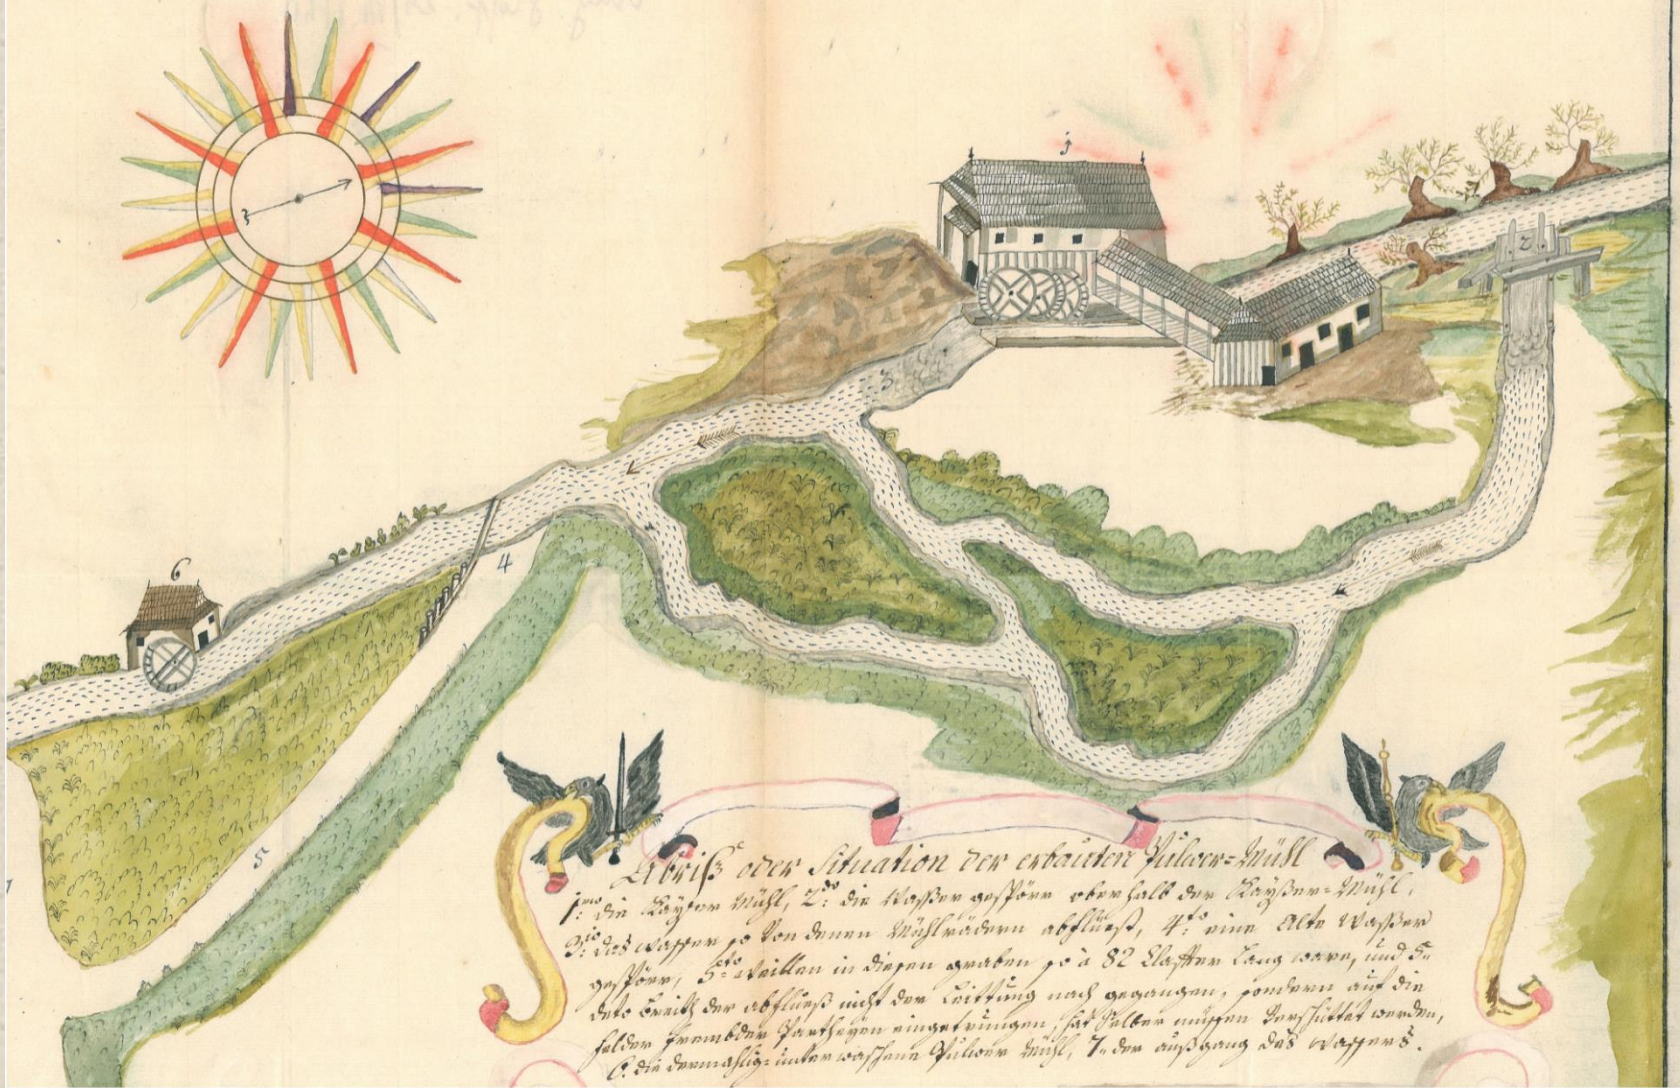 1
2
3
4
6
5
7
Abriß oder Situation der erbauten Pulver=Mühl
1mo: die Kayser Mühl, 2do: die Wasser gespörr oberhalb der Kayser=Mühl,
3tio: das wasser so von denen Mühlrädern abfliest, 4to: eine Alte Wasser
gespörr, 5to: Weillen in diesen graben so à 82 Claffter Lang ware, und 5.
deto breith der abfluß nicht der Leittung nach gegangen, sondern auf die
felder frembder Partheyen eingetrungen, hat selber müssen Verschüttet werden,
6. die dermahlig: unterwaschene Pulver Mühl, 7. der außgang des Wassers.